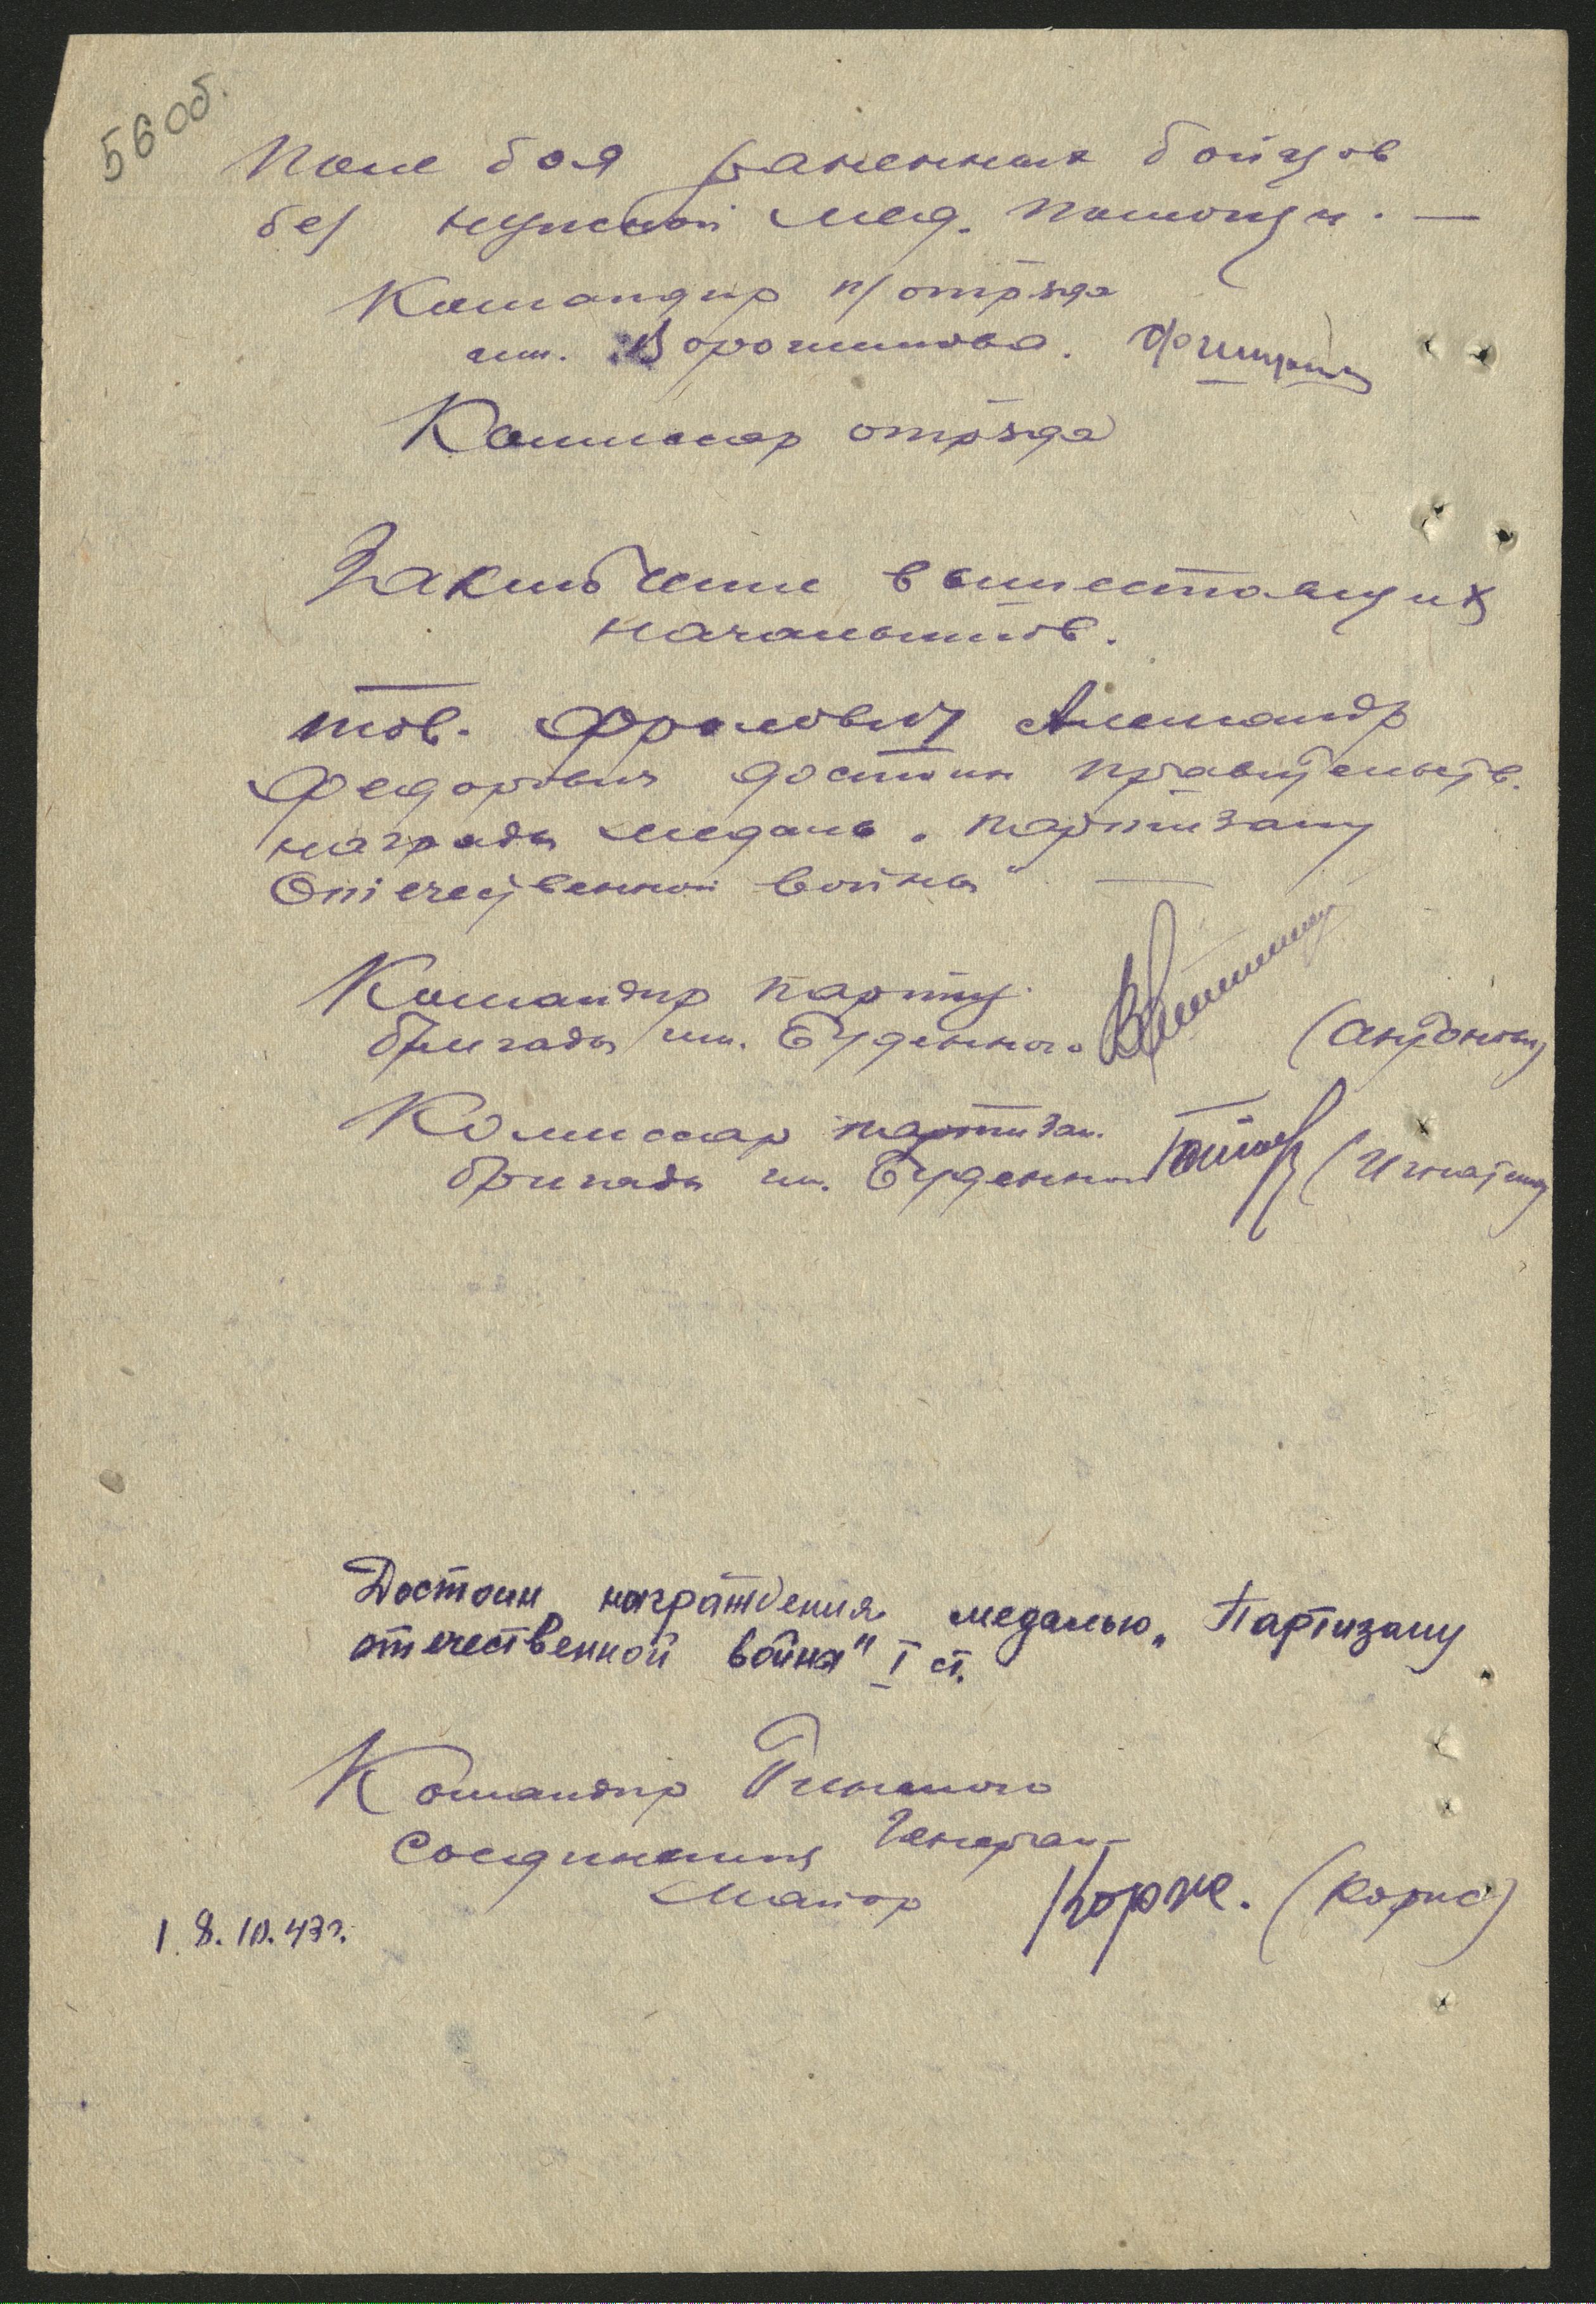 56 об.
поле боя раненных бойцов
без нужной мед. помощи. —
Командир п/отряда
им. Ворошилова.
Комиссар отряда
Заключение вышестоящих
начальников.
тов. Фролович Александр
Федорович достоин правительств.
награды медаль „Партизану
Отечественной войны" —
Командир партиз.
бригады им. Буденного
Комиссар партизан.
бригады им. Буденного
Достоин награждения медалью „Партизану
отечественной война" I ст.
Командир Пинского
Соединения Генерал-
Майор Корж. (Корж)
18.10.43г.